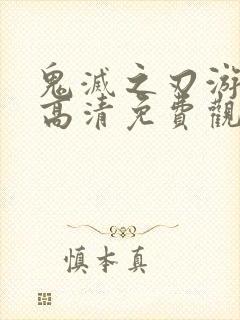 鬼滅之刃游
高清免費觀
慎本真